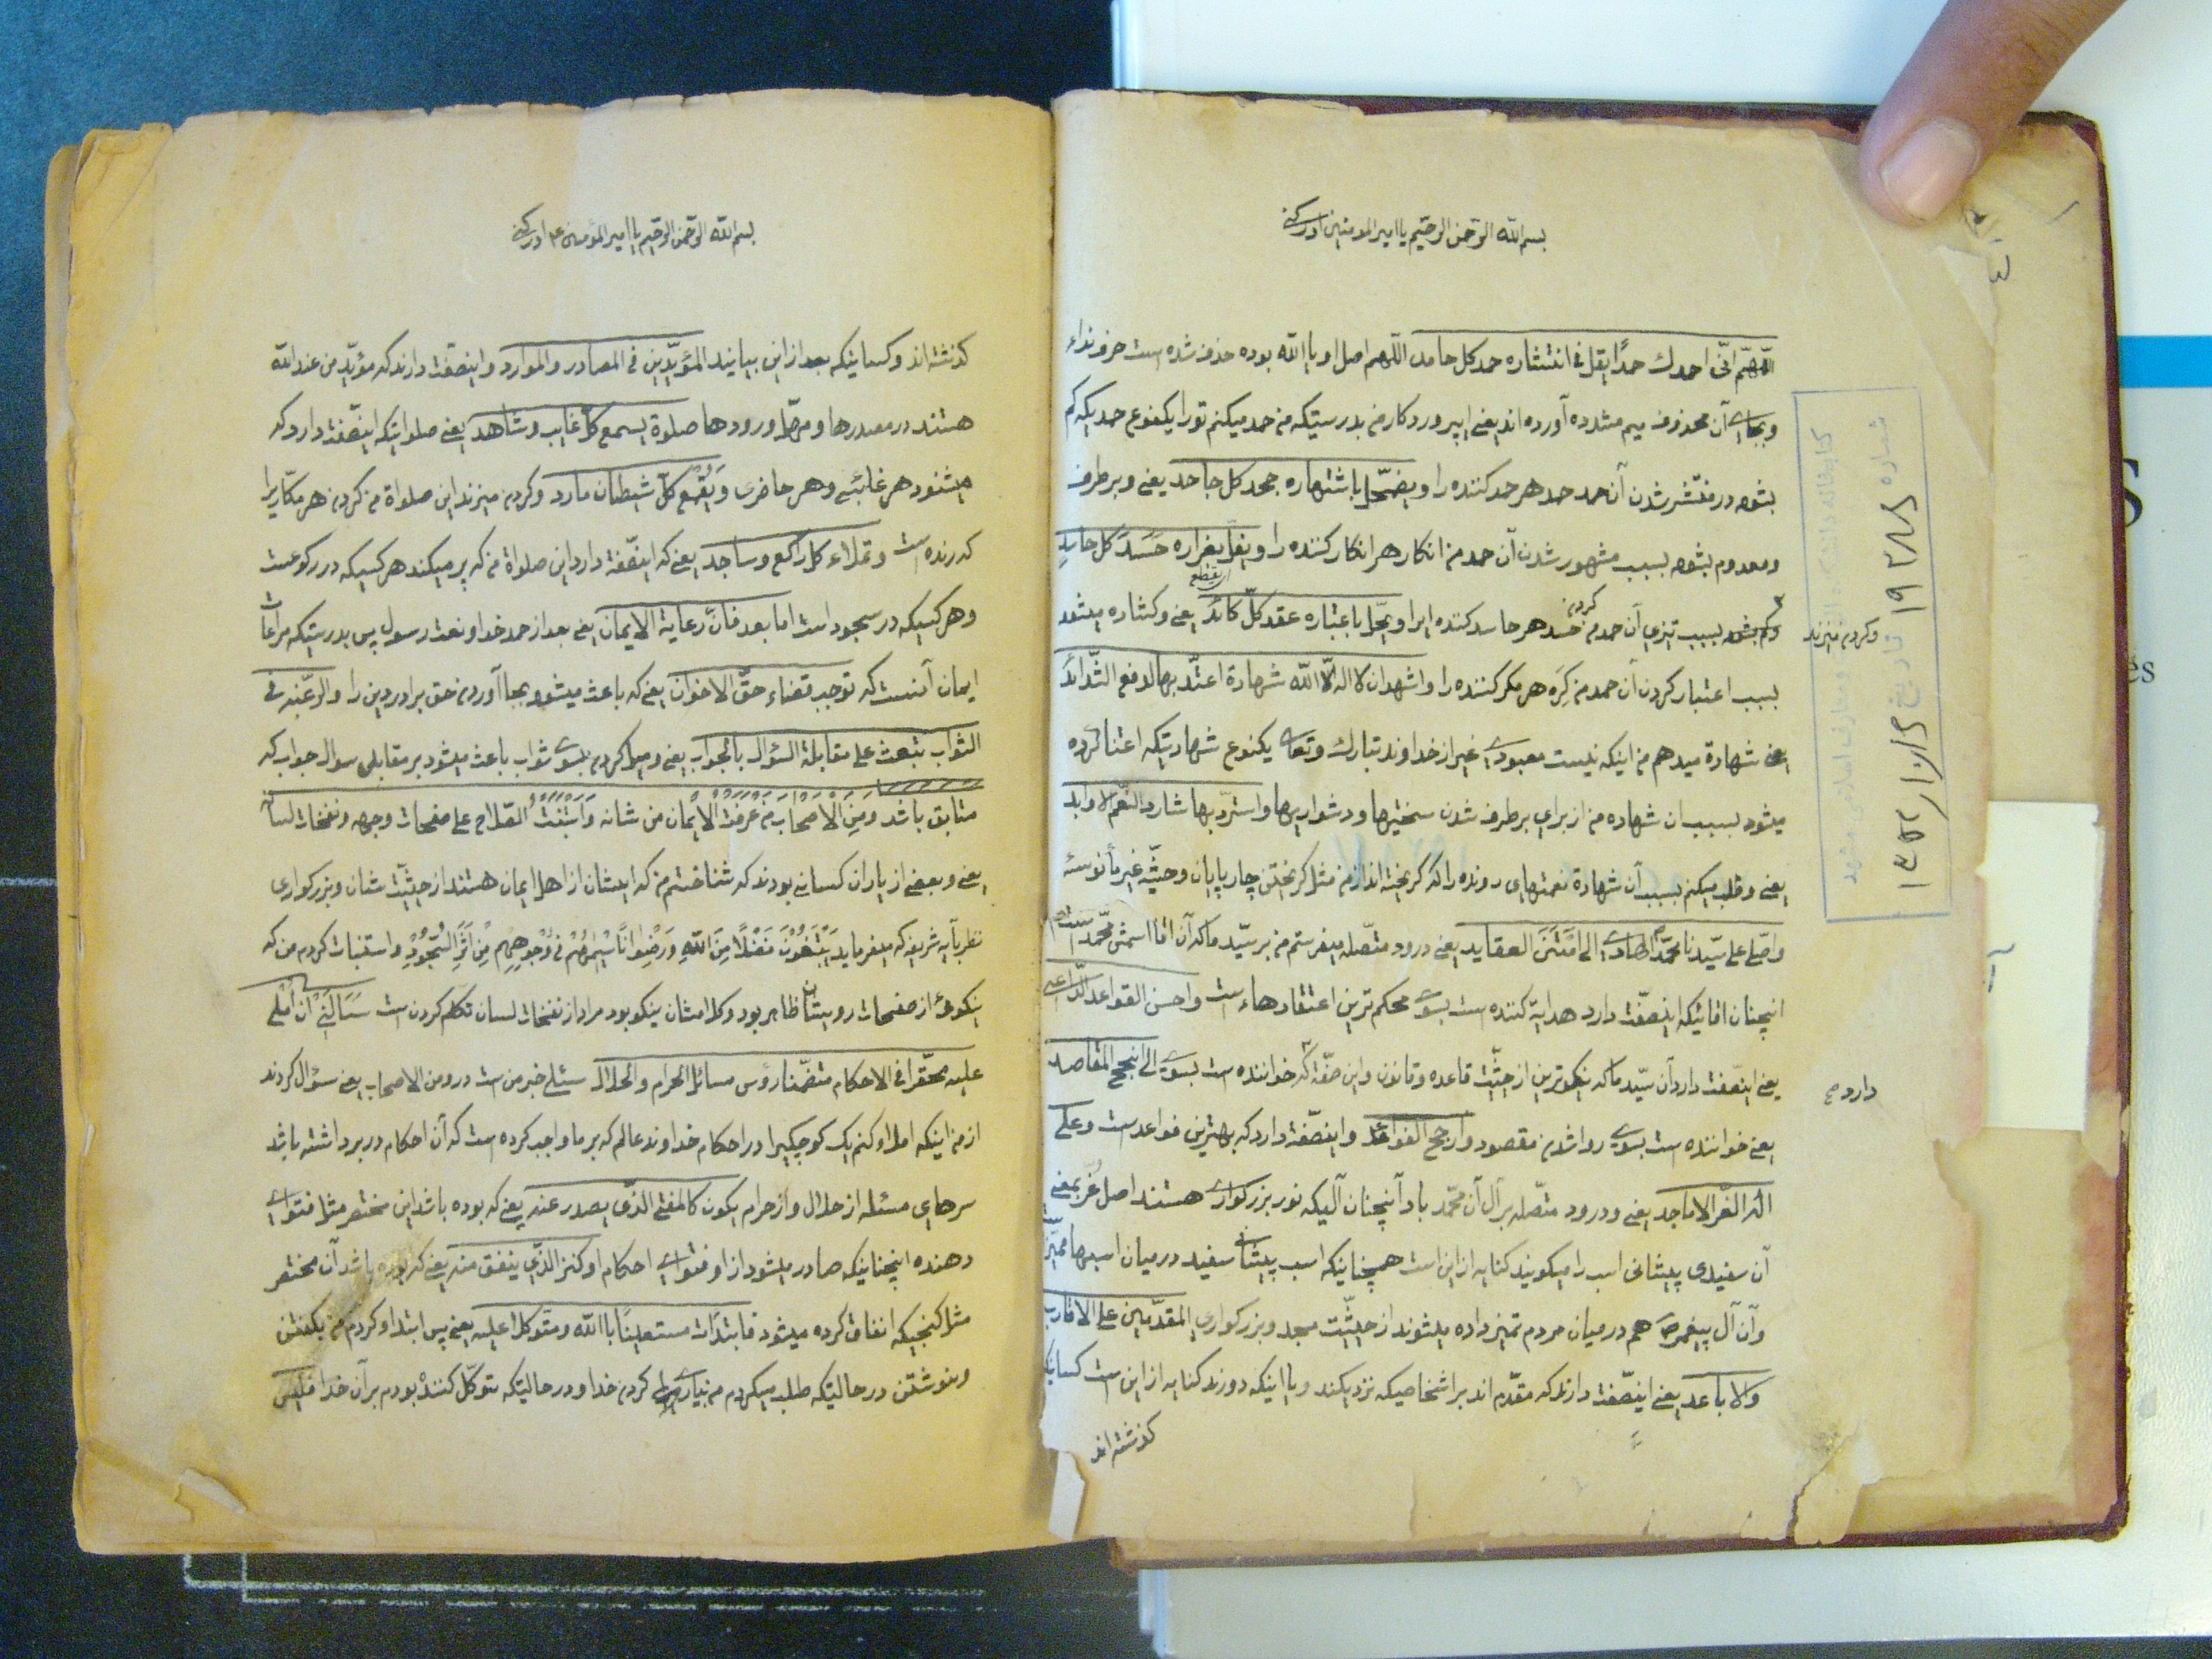 بسم الله الرحمن الرحیم یا امیر المومنین ادرکنی
اللهم انی احمدك حمدًا یقل فی انتشاره حمد کل حامد اللهم اصل او یا الله بوده حذف شده است حرف نداء
وبجای آن محذوف میم مشدده آورده اند یعنی ای پروردکار من بدرستیکه من حمد میکنم تو را یکنوع حمدیکه کم
بشود در منتشر شدن آن حمد حمد هر حمد کننده را ویضمحل باشتهاره جحد کل جاحد یعنی وبرطرف
ومعدوم بشود بسبب مشهور شدن آن حمد من انکار هر انکار کننده را ویفل بغراره حَسَدَ کل حاسدٍ
وکم بشود بسبب تیزی آن حمد من حسد هر حاسد کننده ایرا وینحل باعتباره عقد کلّ کائد یعنی وکشاده میشود
وکردم میزند
بسبب اعتبار کردن آن حمد من کِرَه هر مکر کننده را واشهد ان لا اله الّا الله شهادة اعتدّ بها لدفع الشّدائد
یعنی شهادة میدهم من اینکه نیست معبودی غیر از خداوند تبارك وتعالی یکنوع شهادتیکه اعتنا کرده
میشود بسبب ان شهاده من از برای برطرف شدن سختیها ودشواریها واستردّ بها شارد النّعم الاوابد
یعنی وطلب میکنم بسبب آن شهادة نعمتهای رونده را که کریخته اند از من مثل کریختن چارپایان وحشیّه غیر مأنوسه
واصلّی علی سیّدنا محمّد الهادی الی امتن العقاید یعنی درود متّصله میفرستم من بر سیّد ما که آن اقا اسمش محمّد است
انچنان اقائیکه اینصفت دارد هدایة کننده است بسوی محکم ترین اعتقادهاء است واحسن القواعد الدّاعی
یعنی اینصّفت دارد آن سیّد ما که نیکوترین از حیثیّت قاعده وقانون واین صفة که خواننده است بسوی الی انجح المقاصد
دارد
یعنی خواننده است بسوی روا شدن مقصود وارجح الفوائد واینصّفة دارد که بهترین فواعد ست وعلی
اله الغر الاماجد یعنی ودرود متّصله بر آل آن محمّد باد آنچنان آلیکه نور بزرکواری هستند اصل غُرّ بمعنی
آن سفیدی پیشانی اسب را میکویند کنایه از این است همچنانیکه اسب پیشانی سفید در میان اسبها ممیّز است
وآن آل پیغمبر ص هم در میان مردم تمیز داده میشوند از حیثیّت مجد وبزرکواری المقدّمین علی الاقارب
والاباعد یعنی اینصّفت دارند که مقدّم اند بر اشخاصیکه نزدیکند ویا اینکه دورند کنایه از این ست کسانیکه
کذشته اند
شماره ۱۹۲۸۸
بسم الله الرحمن الرحیم یا امیر المؤمنین ع ادرکنی
کذشته اند وکسانیکه بعد از این بیایند المؤیّدین فی المصادر والموارد واینصّفت دارند که مؤیّد من عند الله
هستند در مصدرها ومحل ورودها صلوة یسمع کلّ غایب وشاهد یعنی صلواتیکه اینصّفت دارد که
میشنود هر غائبی وهر حاضری وَیَقْمَع کلّ شیطان مارد وکردن میزند این صلواة من کردن هر مکّاریرا
که رنده است وتملاء کل راکع وساجد یعنی که اینصّفة دارد این صلواة من که پر میکند هر کسیکه در رکوعست
وهر کسیکه در سجود است اما بعد فانّ رعایة الایمان یعنی بعد از حمد خدا ونعت رسول پس بدرستیکه مراعات
ایمان آنست که توجب قضاء حقّ الاخوان یعنی که باعث میشود بجا آوردن حق برادر دین را والرغبه فی
الثواب تبعث علی مقابلة السؤال بالجواب یعنی ومیل کردن بسوی ثواب باعث میشود بر مقابلی سوال جواب که
متابق باشد وَمِنَ الْاَصْحاب مَنْ عَرَفْتُ الْایْمان من شانه وَاسْتَبَنْتُ الصّلاح علی صفحات وجهه ونفحات لسانه
یعنی وبعضی از یاران کسانی بودند که شناختم من که ایشان از اهل ایمان هستند از حیثیّت شان وبزرکواری
نظر بآیه شریفه که میفرماید یَبْتَغُوْنَ فَضْلًا مِنَ اللهِ وَرِضْواناً سیماهُمْ فی وُجوهِهِم مِنْ اَثَرِ السُّجُوْدِ واستبنات کردم من که
نیکوئی از صفحات رویشان ظاهر بود وکلامشان نیکو بود مراد از نفحات لسان تکلم کردن ست سَئالَنی اَنْ اُمْلی
علیه مختصرا فی الاحکام متضمّنا رؤس مسائل الحرام والحلال سئلنی خبر من ست در ومن الاصحاب یعنی سؤال کردند
از من اینکه املا کنم یک کوچکیرا در احکام خداوند عالم که بر ما واجب کرده است که آن احکام در بر داشته باشد
سرهای مسئله از حلال واز حرام یکون کالمفتی الذی یصدر عنه یعنی که بوده باشد این مختصر مثل فتوای
دهنده انچنانیکه صادر میشود از او فتوای احکام او کنز الذی ینفق منه یعنی که بوده باشد آن مختصر
مثل کنجیکه انفاق کرده میشود فابتدات مستعینًا باالله ومتوکلا علیه یعنی پس ابتدا کردم من بکفتن
ونوشتن در حالتیکه طلب میکردم من یاری کردن خدا ودر حالتیکه توکّل کننده بودم بر آن خدا